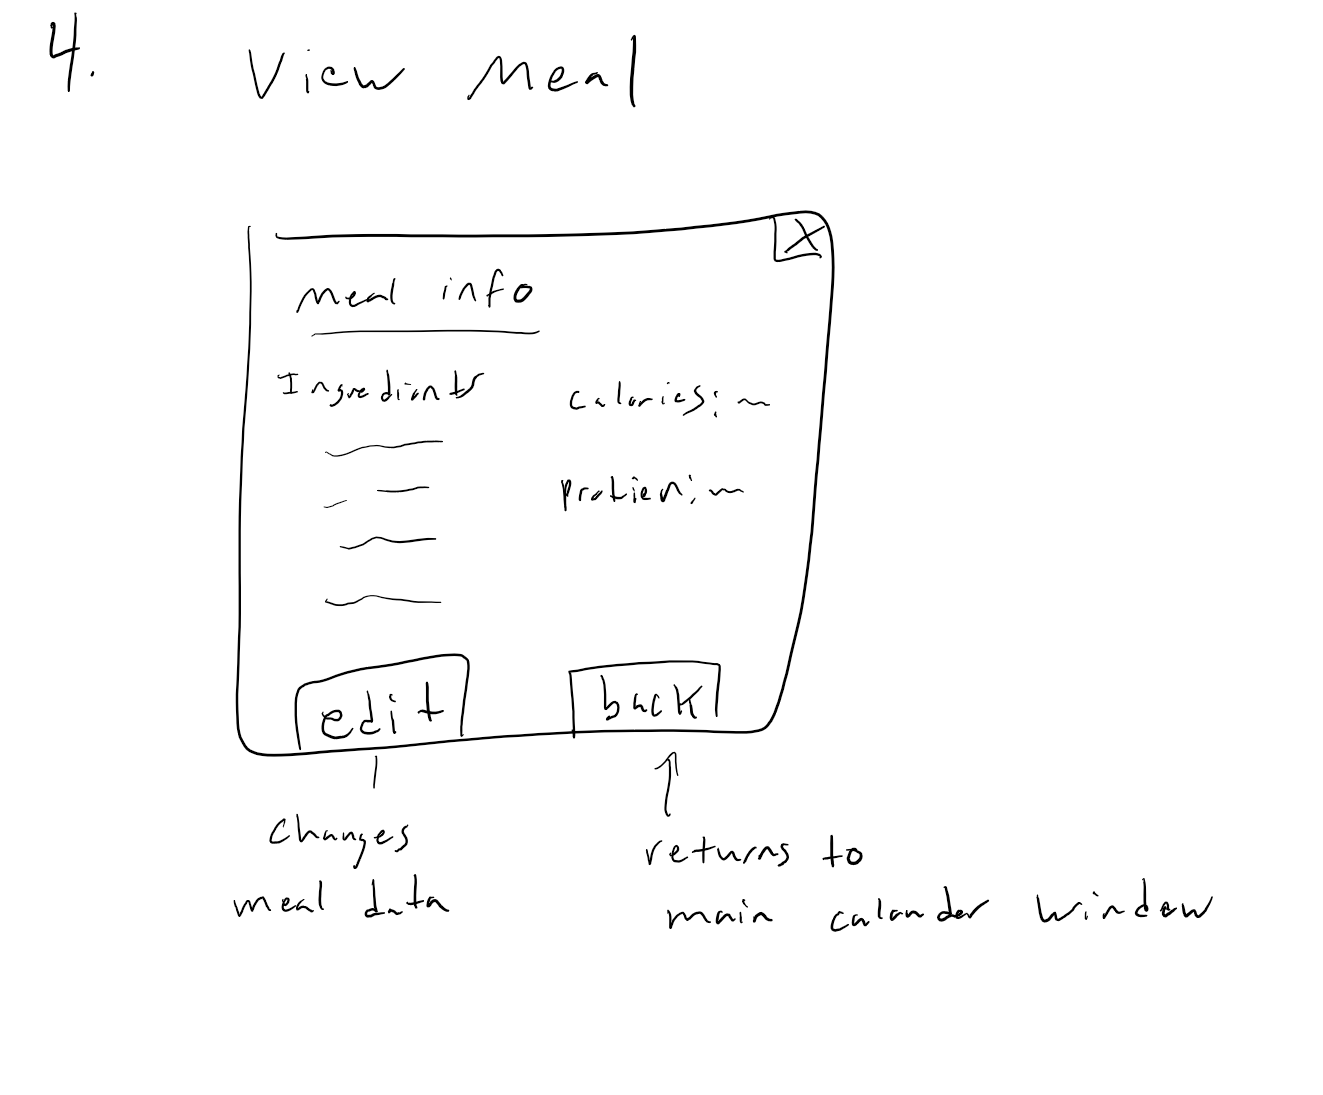 4. View Meal
X
Meal info
Ingredients
calories:
protien:
edit
back
changes
meal data
returns to
main calander window